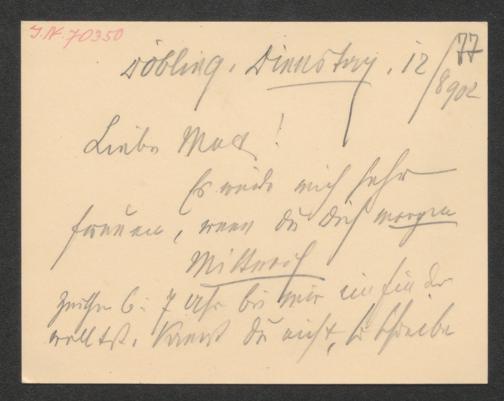 J.N. 70350
77
Döbling. Dienstag. 12/8 902
Lieber Max!
Es würde mich sehr
freuen, wenn du dich morgen
Mittwoch
zwischen 6 - 7 Uhr bei mir einfinden
wolltest. Kannst du nicht, so schreibe